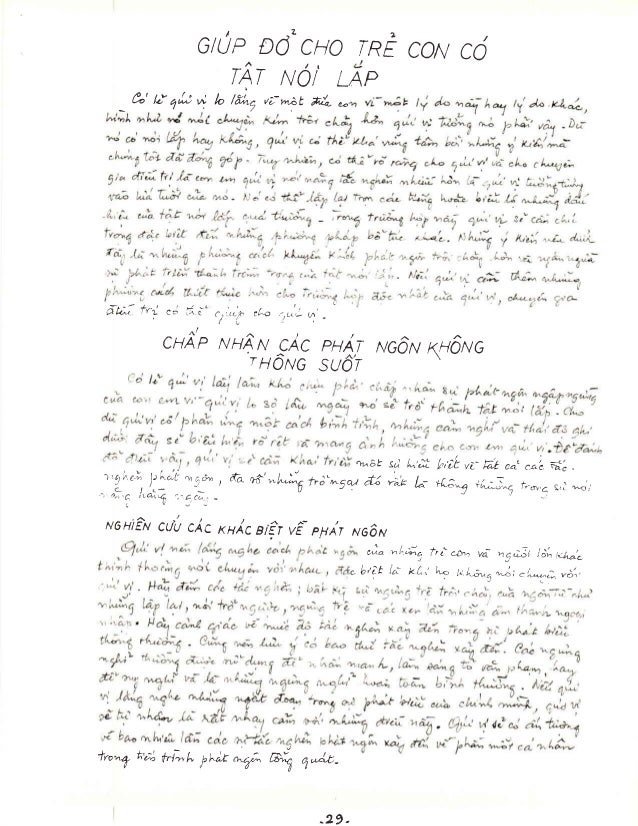 GIÚP ĐỞ CHO TRẺ CON CÓ
TẬT NÓI LẮP
Có lẽ quí vị lo lắng về một đứa con vì một lý do này hay lý do khác,
hình như nó nói chuyện kém trôi chảy hơn quí vị tưởng nó phải vậy. Dù
nó có nói lắp hay không, quí vị có thể khá vững tâm bởi những ý kiến mà
chúng tôi đã đóng góp. Tuy nhiên, có thể rõ ràng cho quí vị và cho chuyên
gia điều trị là con em quí vị nói năng tắc nghẽn nhiều hơn là quí vị tưởng tượng
vào lứa tuổi của nó. Nó có thể lắp lại trọn các tiếng hoặc biểu lộ những dấu
hiệu của tật nói lắp quá thường. Trong trường hợp này quí vị sẽ cần chú
trọng đặc biệt đến những phương pháp bổ túc khác. Những ý kiến nêu dưới
đây là những phương cách khuyến khích phát ngôn trôi chảy hơn và ngăn ngừa
sự phát triển thành trầm trọng của tật nói lắp. Nếu quí vị cần thêm những
phương cách thiết thực hơn cho trường hợp độc nhất của quí vị, chuyên gia
điều trị có thể giúp cho quí vị.
CHẤP NHẬN CÁC PHÁT NGÔN KHÔNG
THÔNG SUỐT
Có lẽ quí vị lấy làm khó chịu phải chấp nhận sự phát ngôn ngập ngừng
của con em vì quí vị lo sợ lâu ngày nó sẽ trở thành tật nói lắp. Cho
dù quí vị cố phản ứng một cách bình tĩnh, những cảm nghĩ và thái độ ghi
dưới đây sẽ biểu hiện rõ rệt và mang ảnh hưởng cho con em quí vị. Để đánh
đổ điều này, quí vị sẽ cần khai triển một sự hiểu biết về tất cả các tắc
nghẽn phát ngôn, đa số những trở ngại đó rất là thông thường trong sự nói
năng hằng ngày.
NGHIÊN CỨU CÁC KHÁC BIỆT VỀ PHÁT NGÔN
Quí vị nên lắng nghe cách phát ngôn của những trẻ con và người lớn khác
thỉnh thoảng nói chuyện với nhau, đặc biệt là khi họ không nói chuyện với
quí vị. Hãy đếm các tắc nghẽn; bất kỳ sự ngưng trệ trôi chảy của ngôn từ như
những lắp lại, nói trở ngược, ngưng trệ và các xen lẫn những âm thanh ngoại
nhập. Hãy cảnh giác về mức độ tắc nghẽn xảy đến trong sự phát biểu
thông thường. Cũng nên lưu ý có bao thứ tắc nghẽn xảy đến. Các ngưng
nghỉ thường được sử dụng để nhấn mạnh, làm sáng tỏ văn phạm, hay
để suy nghĩ và là những ngưng nghỉ hoàn toàn bình thường. Nếu quí
vị lắng nghe những ngắt đoạn trong sự phát biểu của chính mình, quí vị
sẽ tự nhiên là rất nhạy cảm với những điều này. Quí vị sẽ có ấn tượng
về bao nhiêu lần các sự tắc nghẽn phát ngôn xảy đến về phần một cá nhân
trong tiến trình phát ngôn tổng quát.
.29.